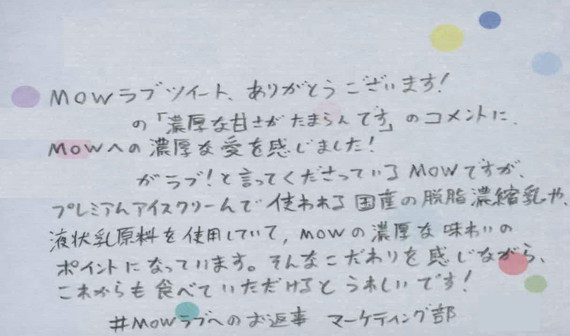 MOWラブツイート、ありがとうございます!
の「濃厚な甘さがたまらんです」のコメントに、
MOWへの濃厚な愛を感じました!
がラブ!と言ってくださっているMOWですが、
プレミアムアイスクリームで使われる国産の脱脂濃縮乳や、
液状乳原料を使用していて、MOWの濃厚な味わいの
ポイントになっています。そんなこだわりを感じながら、
これからも食べていただけるとうれしいです!
#MOWラブへのお返事 マーケティング部